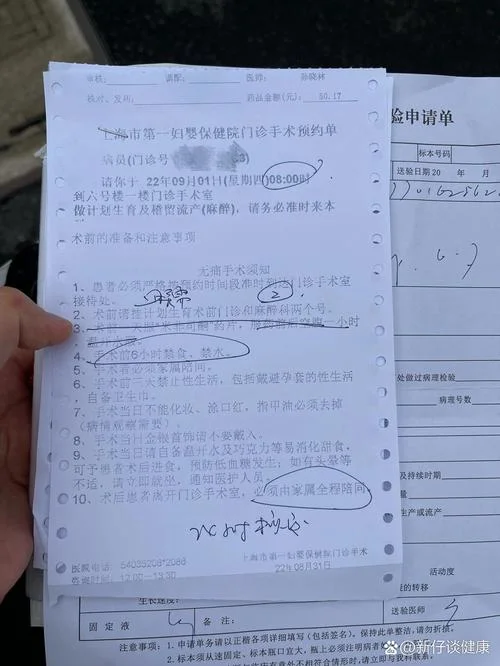 审核:
调配:
医师:
孙晓林
核对、发药:
药品金额(元):
50.17
上海市第一妇婴保健院门诊手术预约单
病员(门诊号
3)
请你于 22年09月01日(星期四)08:00时
到六号楼一楼门诊手术室
做计划生育及稽留流产(麻醉), 请务必准时来本
术前的准备和注意事项
无痛手术须知
1、患者必须严格按预约时间段准时到达门诊手术室
接待处。
2
2、术前请挂计划生育术前门诊和麻醉科两个号。
3、术前一天服“米非司酮”药片，服药前后空腹一小时
4、手术前6小时禁食、禁水。
5、手术者必须家属陪同。
6、手术前三天禁止性生活，包括戴避孕套的性生活
，自备卫生巾。
7、手术当日不能化妆、涂口红，指甲油必须去掉
(病情观察需要)。
8、手术当日金银首饰请不要戴入。
9、手术当日请自备温开水及巧克力等易消化甜食，
可予患者术后进食，预防低血糖发生；如有头晕等
不适，请立即就坐，通知医护人员。
10、术后患者离开门诊手术室，必须由家属全程陪同。
医院电话: 54035206*2088
咨询时间: 12:00-13:30
上海市第一妇婴保健院门诊手术
22年08月31日
验申请单
标本号码
送检日期 20 年 月
处做过病理检验
病理号数
及持续时期
生产或流产
活动度
的转移
生长速度:
送检医师
固定液
备注:
注意事项: 1、申请单务请以正楷各项详细填写(包括签名)。保持此单整洁，请勿折损。
@新仔谈健康